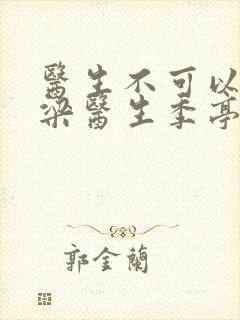 醫生不可以
梁醫生季亭
郭金蘭